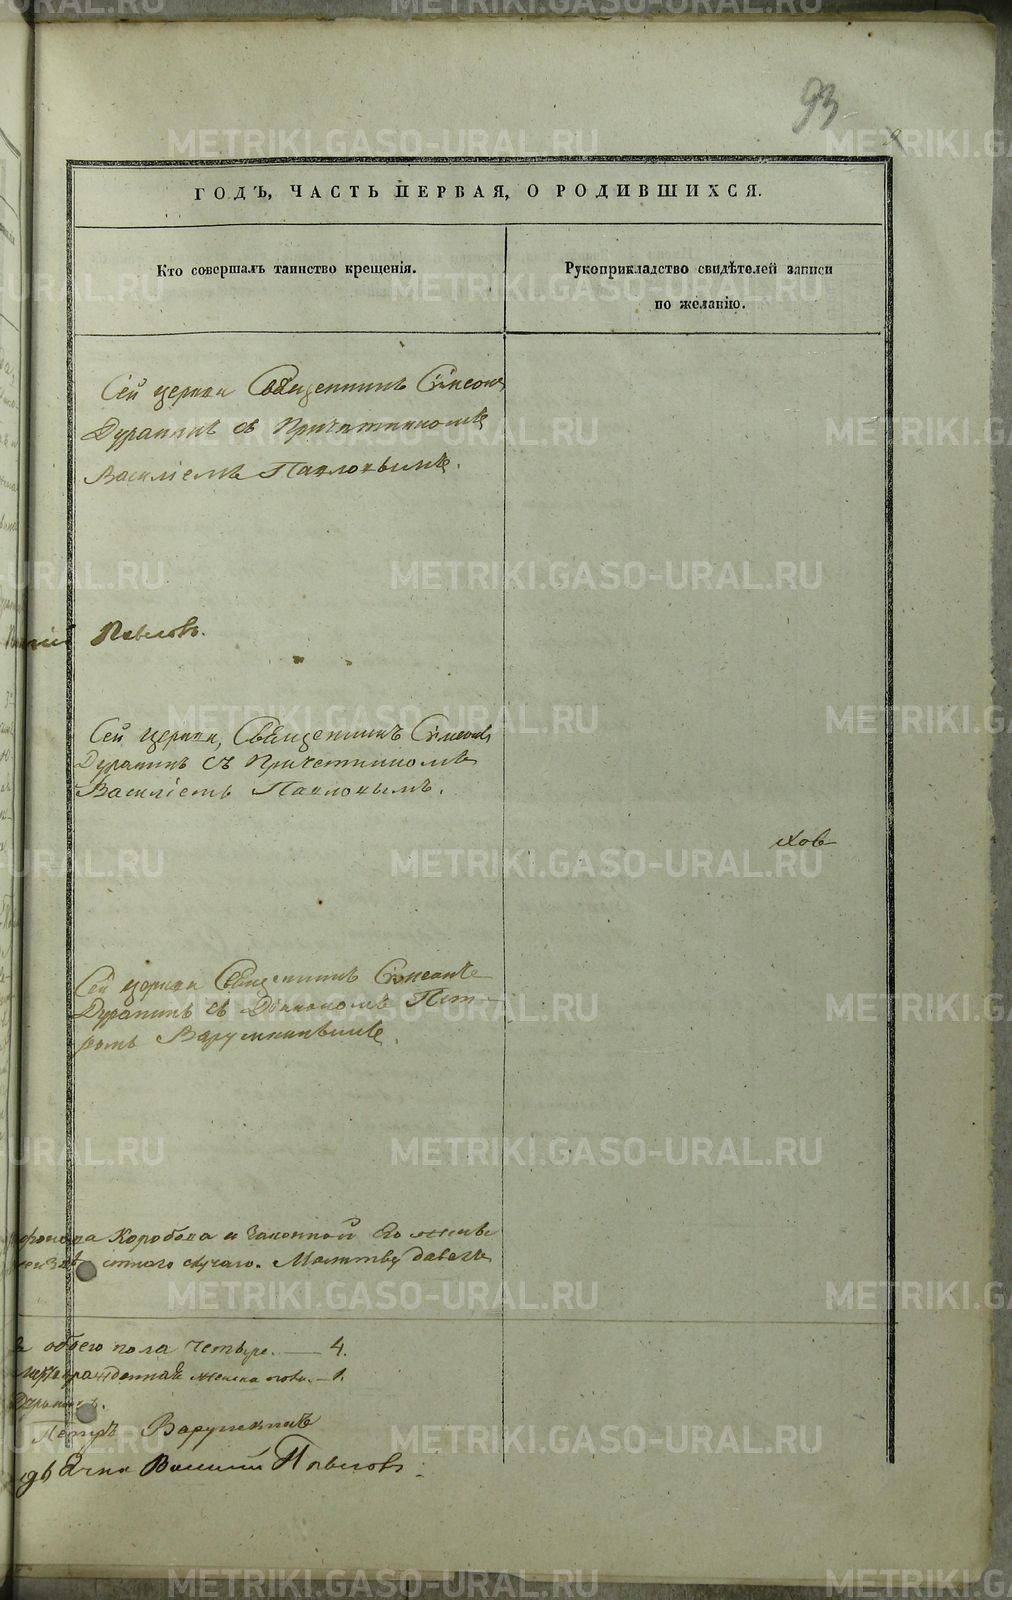 93
ГОДЪ, ЧАСТЬ ПЕРВАЯ, О РОДИВШИХСЯ.
Кто совершалъ таинство крещенія.
Рукоприкладство свидѣтелей записи
по желанію.
Сей церкви Священникъ Сімеонъ
Дуранинъ съ Причетникомъ
Василіемъ Павловымъ.
Павловъ.
Сей церкви, Священникъ Сімеонъ
Дуранинъ съ Причетникомъ
Василіемъ Павловымъ.
ховъ
Сей церкви Священникъ Сімеонъ
Дуранинъ съ Діакономъ Пет-
ромъ
Коробова и законной Его жены
случаю. Молитву давалъ
обоего пола четыре. — 4.
женска пола. — 1.
Петръ
Василій Павловъ
METRIKI.GASO-URAL.RU